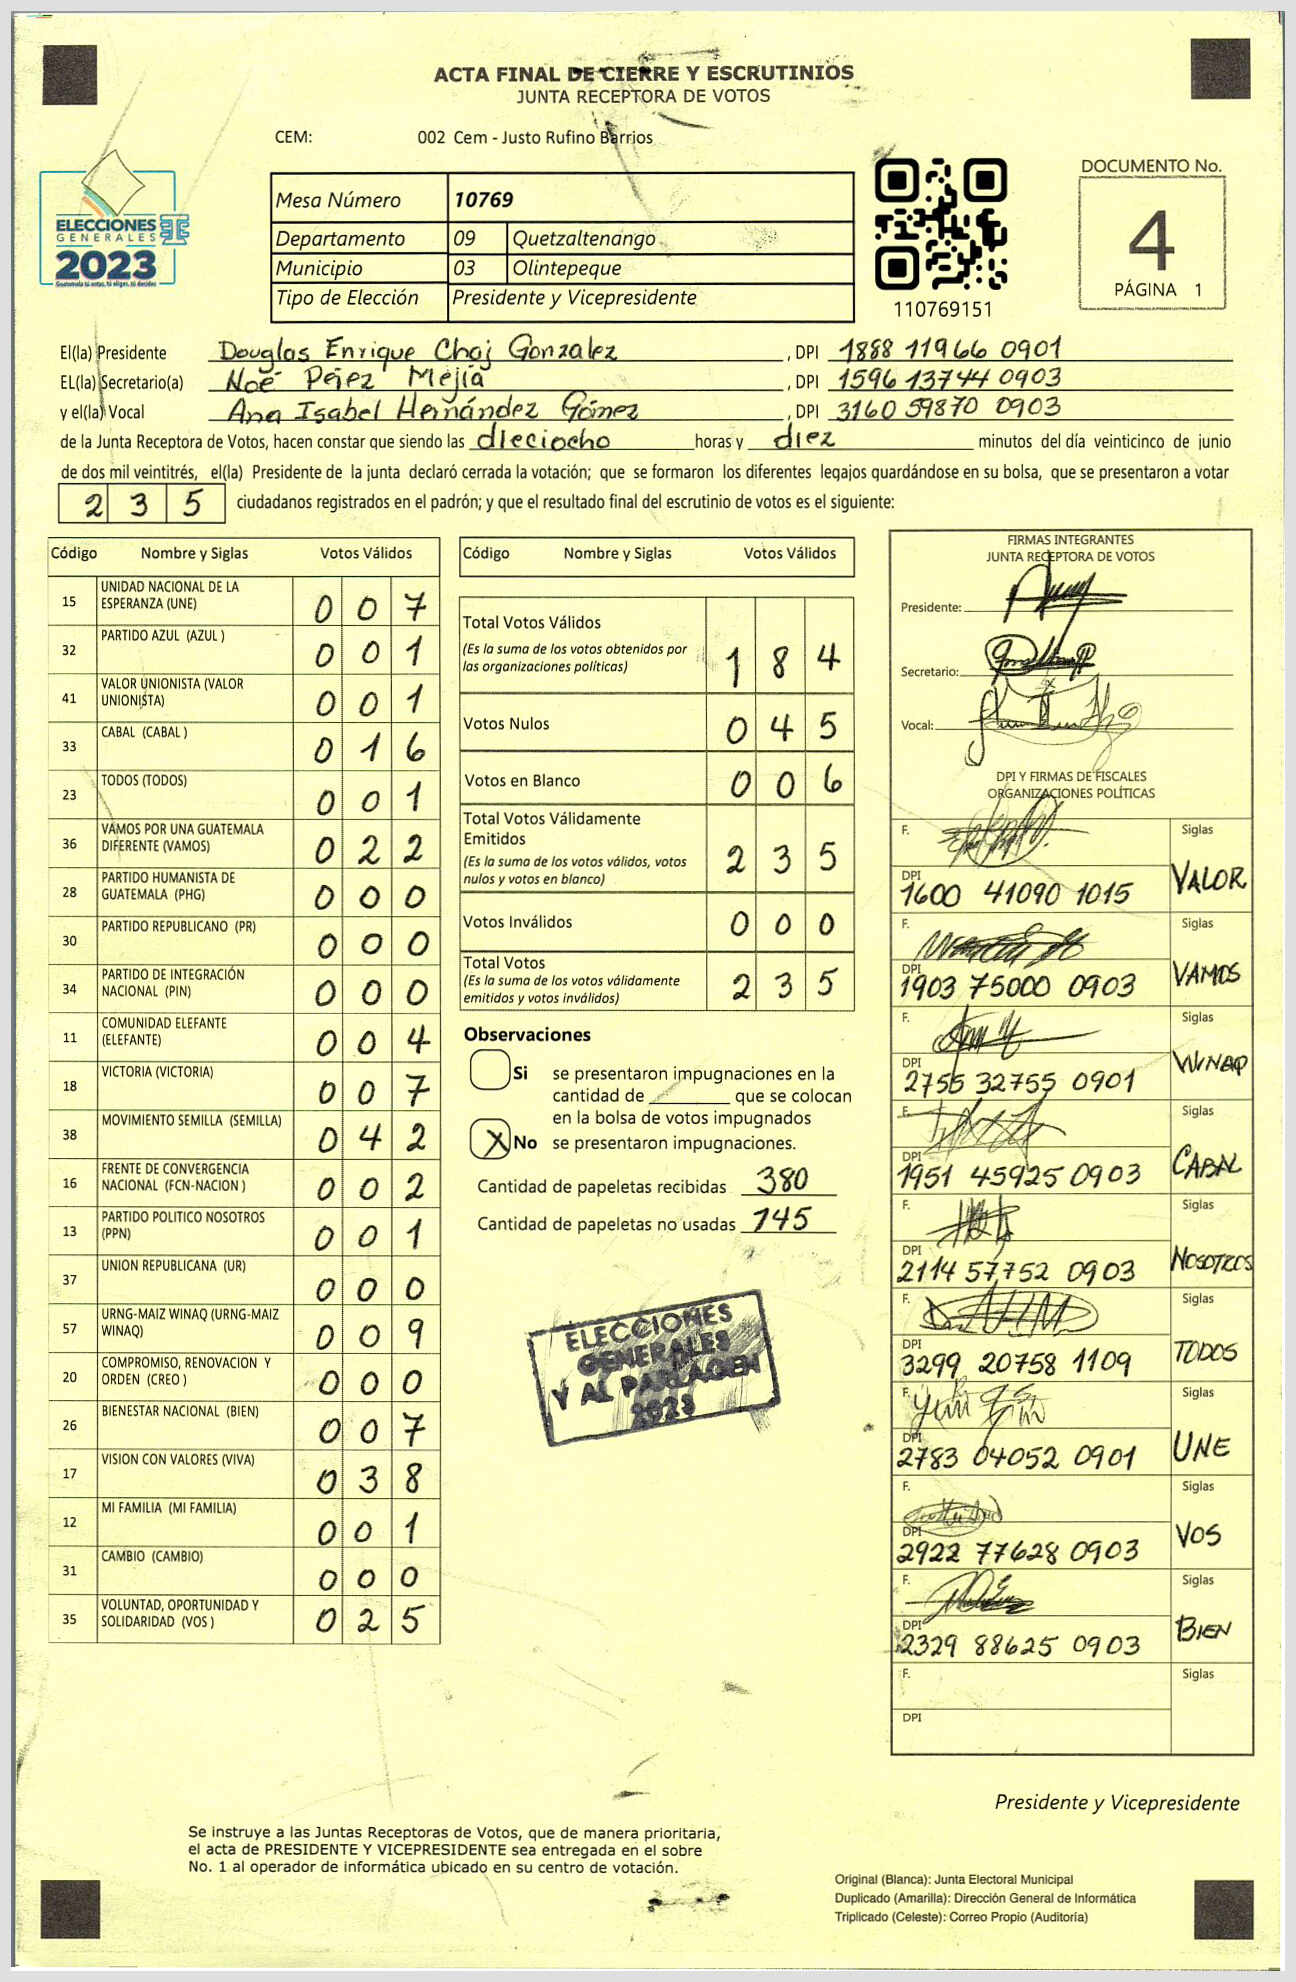 ACTA FINAL DE CIERRE Y ESCRUTINIOS
JUNTA RECEPTORA DE VOTOS
CEM: 002 Cem - Justo Rufino Barrios
ELECCIONES
GENERALES
2023
Guatemala tú votas, tú eliges, tú decides
Mesa Número 10769
Departamento 09 Quetzaltenango
Municipio 03 Olintepeque
Tipo de Elección Presidente y Vicepresidente
110769151
DOCUMENTO No.
4
PÁGINA 1
El(la) Presidente Douglas Enrique Choj Gonzalez , DPI 1888 11966 0901
EL(la) Secretario(a) Noé Pérez Mejía , DPI 1596 13744 0903
y el(la) Vocal Ana Isabel Hernández Gómez , DPI 3160 59870 0903
de la Junta Receptora de Votos, hacen constar que siendo las dieciocho horas y diez minutos del día veinticinco de junio
de dos mil veintitrés, el(la) Presidente de la junta declaró cerrada la votación; que se formaron los diferentes legajos guardándose en su bolsa, que se presentaron a votar
235 ciudadanos registrados en el padrón; y que el resultado final del escrutinio de votos es el siguiente:
Código Nombre y Siglas Votos Válidos
15 UNIDAD NACIONAL DE LA ESPERANZA (UNE) 0 0 7
32 PARTIDO AZUL (AZUL ) 0 0 1
41 VALOR UNIONISTA (VALOR UNIONISTA) 0 0 1
33 CABAL (CABAL ) 0 1 6
23 TODOS (TODOS) 0 0 1
36 VAMOS POR UNA GUATEMALA DIFERENTE (VAMOS) 0 2 2
28 PARTIDO HUMANISTA DE GUATEMALA (PHG) 0 0 0
30 PARTIDO REPUBLICANO (PR) 0 0 0
34 PARTIDO DE INTEGRACIÓN NACIONAL (PIN) 0 0 0
11 COMUNIDAD ELEFANTE (ELEFANTE) 0 0 4
18 VICTORIA (VICTORIA) 0 0 7
38 MOVIMIENTO SEMILLA (SEMILLA) 0 4 2
16 FRENTE DE CONVERGENCIA NACIONAL (FCN-NACION ) 0 0 2
13 PARTIDO POLITICO NOSOTROS (PPN) 0 0 1
37 UNION REPUBLICANA (UR) 0 0 0
57 URNG-MAIZ WINAQ (URNG-MAIZ WINAQ) 0 0 9
20 COMPROMISO, RENOVACION Y ORDEN (CREO ) 0 0 0
26 BIENESTAR NACIONAL (BIEN) 0 0 7
17 VISION CON VALORES (VIVA) 0 3 8
12 MI FAMILIA (MI FAMILIA) 0 0 1
31 CAMBIO (CAMBIO) 0 0 0
35 VOLUNTAD, OPORTUNIDAD Y SOLIDARIDAD (VOS ) 0 2 5
Código Nombre y Siglas Votos Válidos
Total Votos Válidos 1 8 4
(Es la suma de los votos obtenidos por
las organizaciones políticas)
Votos Nulos 0 4 5
Votos en Blanco 0 0 6
Total Votos Válidamente
Emitidos 2 3 5
(Es la suma de los votos válidos, votos
nulos y votos en blanco)
Votos Inválidos 0 0 0
Total Votos 2 3 5
(Es la suma de los votos válidamente
emitidos y votos inválidos)
Observaciones
Si se presentaron impugnaciones en la
cantidad de ________ que se colocan
en la bolsa de votos impugnados
X No se presentaron impugnaciones.
Cantidad de papeletas recibidas 380
Cantidad de papeletas no usadas 145
ELECCIONES
GENERALES
Y AL PARLACEN
2023
FIRMAS INTEGRANTES
JUNTA RECEPTORA DE VOTOS
Presidente:
Secretario:
Vocal:
DPI Y FIRMAS DE FISCALES
ORGANIZACIONES POLÍTICAS
F. Siglas
DPI 1600 41090 1015 VALOR
F. Siglas
DPI 1903 75000 0903 VAMOS
F. Siglas
DPI 2755 32755 0901 WINAQ
F. Siglas
DPI 1951 45925 0903 CABAL
F. Siglas
DPI 2114 57752 0903 NOSOTROS
F. Siglas
DPI 3299 20758 1109 TODOS
F. Siglas
DPI 2783 04052 0901 UNE
F. Siglas
DPI 2922 77628 0903 VOS
F. Siglas
DPI 2329 88625 0903 BIEN
F. Siglas
DPI
Presidente y Vicepresidente
Se instruye a las Juntas Receptoras de Votos, que de manera prioritaria,
el acta de PRESIDENTE Y VICEPRESIDENTE sea entregada en el sobre
No. 1 al operador de informática ubicado en su centro de votación.
Original (Blanca): Junta Electoral Municipal
Duplicado (Amarilla): Dirección General de Informática
Triplicado (Celeste): Correo Propio (Auditoría)